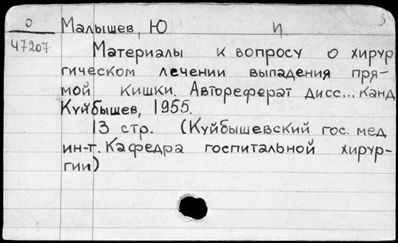 О Малышев, Ю И
47207
Материалы к вопросу о хирур
гическом лечении выпадения пря-
мой кишки. Автореферат дисс... канд
Куйбышев, 1955.
13 стр. (Куйбышевский гос. мед
ин-т. Кафедра госпитальной хирур-
гии)